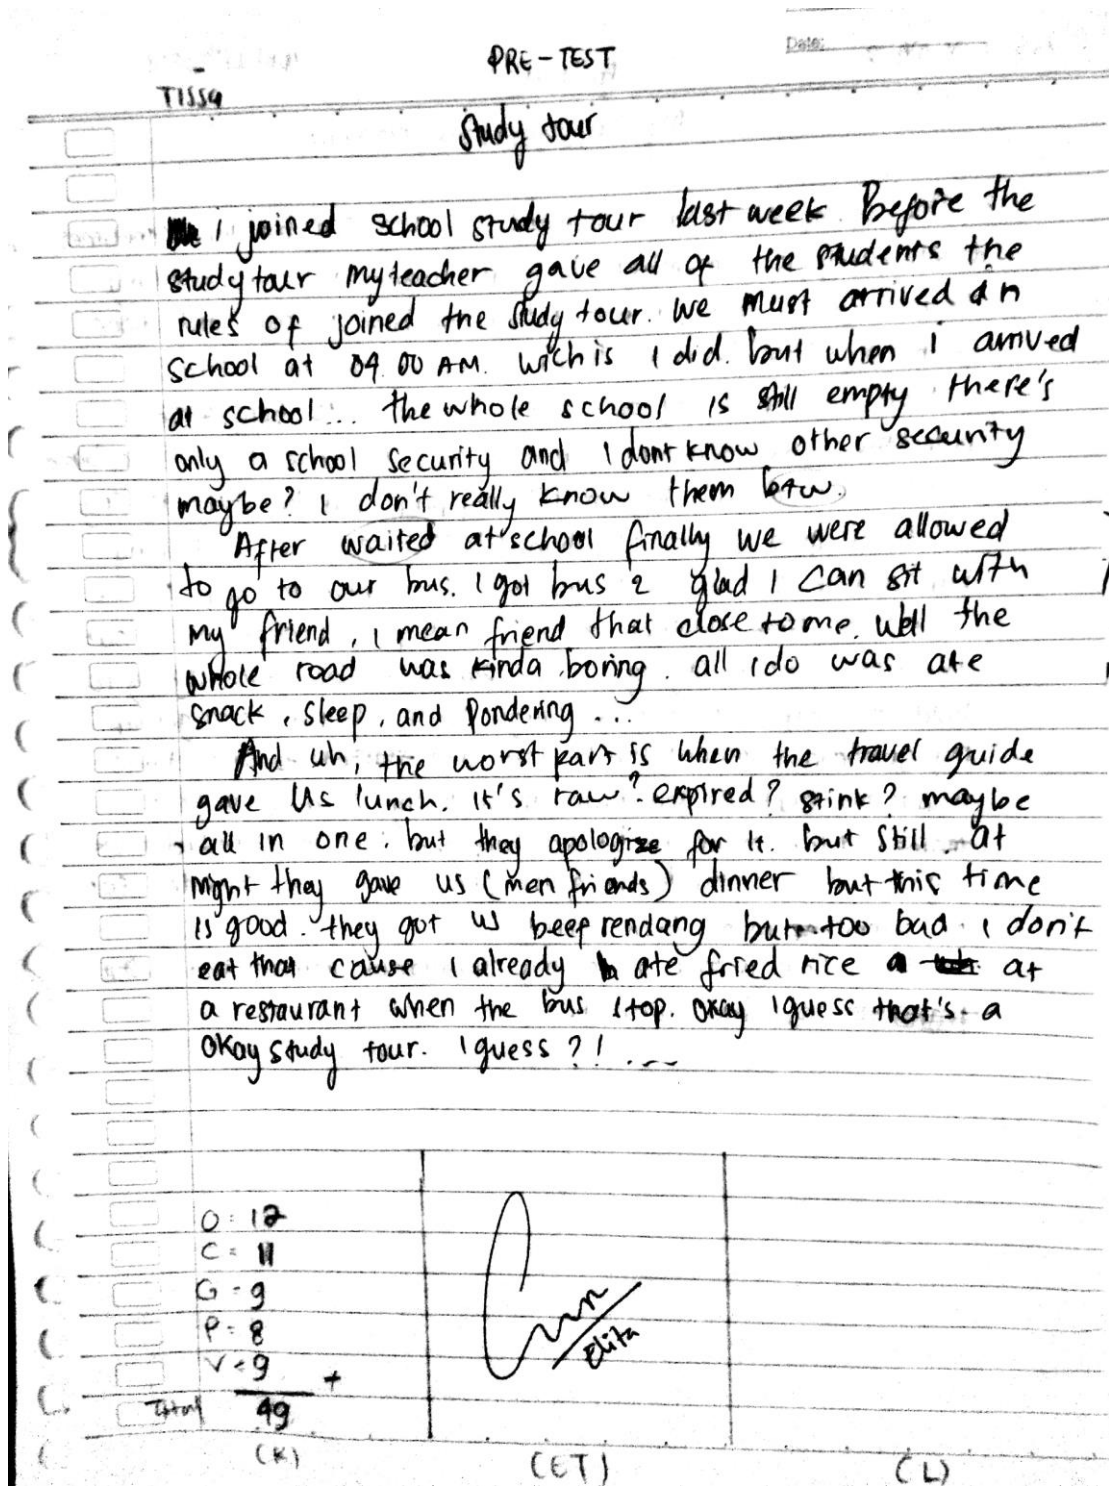 PRE-TEST
Date:
TISSA
Study tour
I joined school study tour last week Before the
study tour my teacher gave all of the students the
rules of joined the study tour. We must arrived in
school at 04.00 AM. wich is I did. but when I arrived
at school... the whole school is still empty there's
only a school security and I dont know other security
maybe? I don't really know them btw.
After waited at school finally we were allowed
to go to our bus. I got bus 2 glad I can sit with
my friend, I mean friend that close to me. Well the
whole road was kinda boring. all I do was ate
snack, sleep, and Pondering...
And uh, the worst part is when the travel guide
gave us lunch. it's raw? expired? stink? maybe
all in one. but they apologize for it. but still. at
night they gave us (men friends) dinner but this time
is good. they got us beef rendang but too bad I don't
eat that cause I already ate fried rice at
a restaurant when the bus stop. Okay I guess that's a
Okay study tour. I guess?!...
O = 12
C = 11
G = 9
P = 8
V = 9
+
Total 49
Elita
(K) (ET) (L)